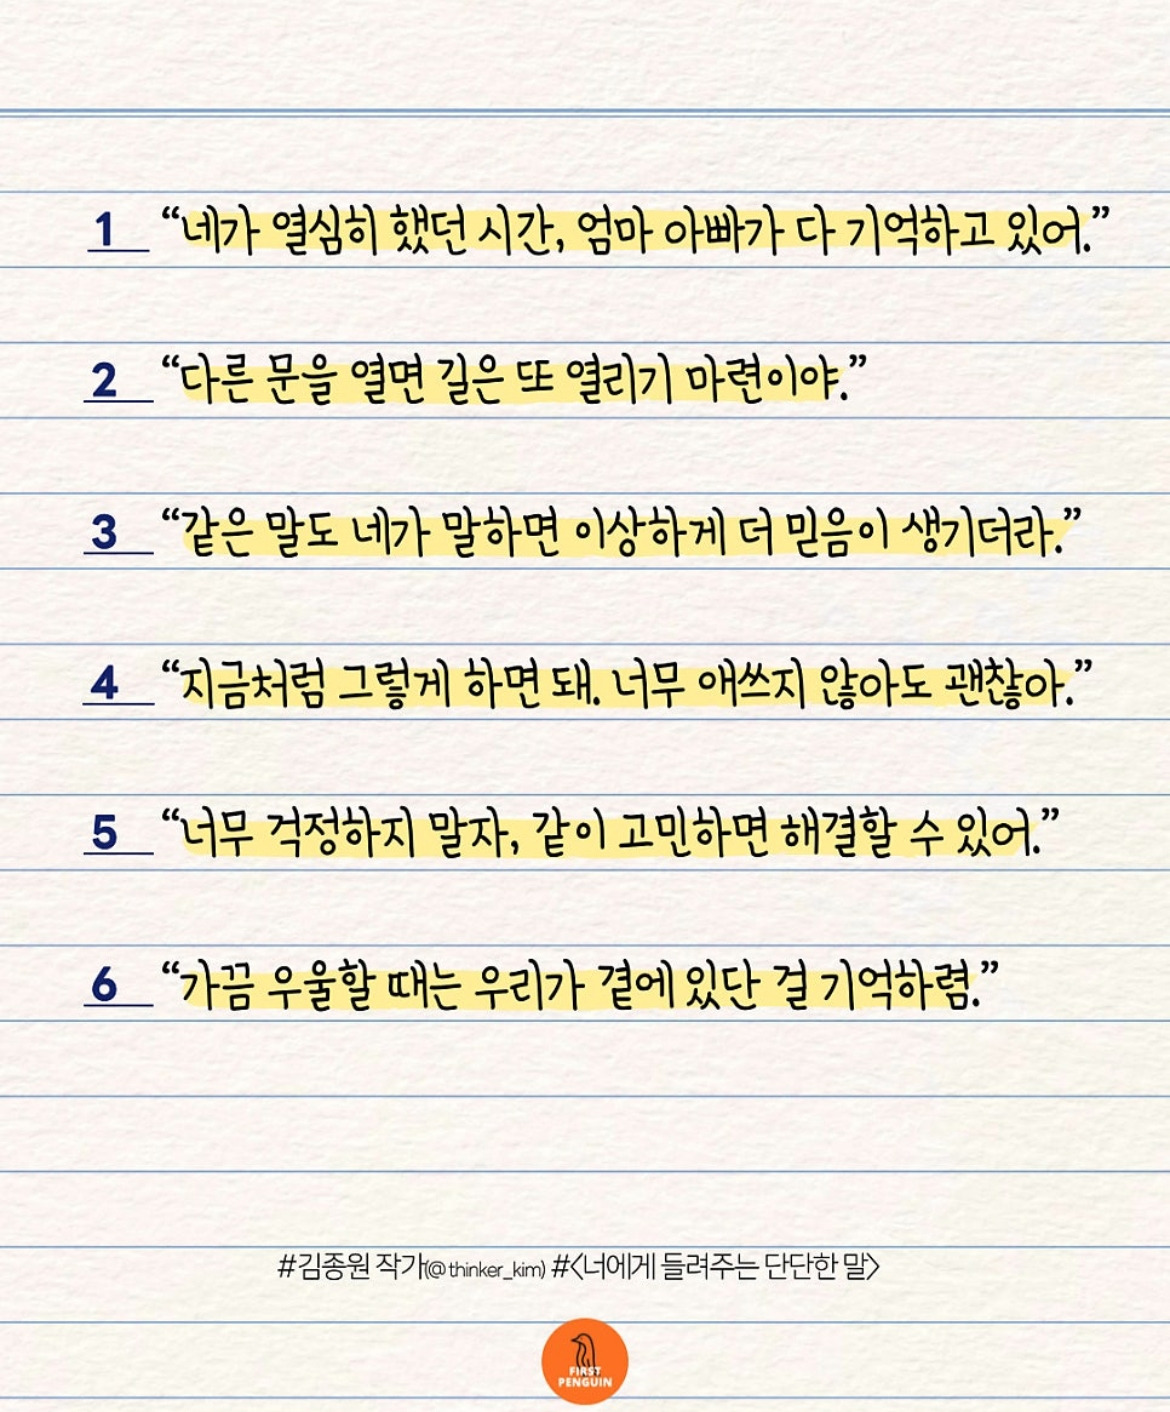 1 “네가 열심히 했던 시간, 엄마 아빠가 다 기억하고 있어.”
2 “다른 문을 열면 길은 또 열리기 마련이야.”
3 “같은 말도 네가 말하면 이상하게 더 믿음이 생기더라.”
4 “지금처럼 그렇게 하면 돼. 너무 애쓰지 않아도 괜찮아.”
5 “너무 걱정하지 말자, 같이 고민하면 해결할 수 있어.”
6 “가끔 우울할 때는 우리가 곁에 있단 걸 기억하렴.”
#김종원 작가(@thinker_kim) #<너에게 들려주는 단단한 말>
FIRST
PENGUIN